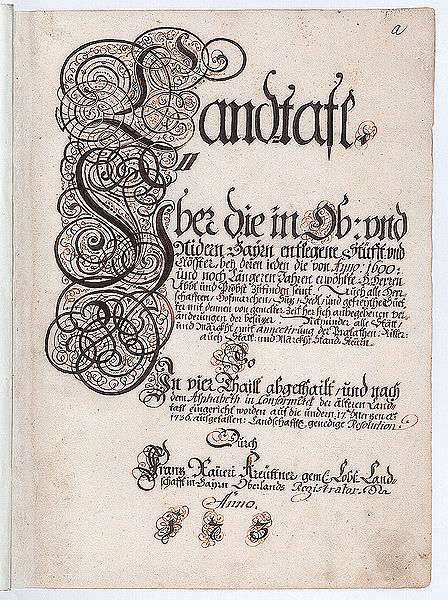 a
Landtafl.
Uber die in Ob: und
Nidern Bayrn entlegene Stüfft und
Clöster, bey deren ieden die von Anno: 1600:
und noch Längern Jahren erwöhlte H: Herren
Äbbt und Pröbst zufinden seint. Auch alle Herr-
schafften, Hofmarchen, Siz, Sedl, und gefreythe Güet-
ter mit denen von gemelter Zeit her sich anbegebenen ver-
änderungen der besizer. alle Statt,
und Märckht, mit annectirung der Praelathen: Ritter:
auch Statt: und Märckht Stand
So
In vier Thaill abgethailt, und nach
dem Alphabeth in Conformitet der ältern Land-
tafl eingericht worden auf die undern 17.
1756. ausgefallen: Landschaffts: genedige Resolution.
Durch
Franz Xaveri Kreüttner, gem: Löbl: Land-
schafft in Bayrn Oberlands Registrator.
Anno.